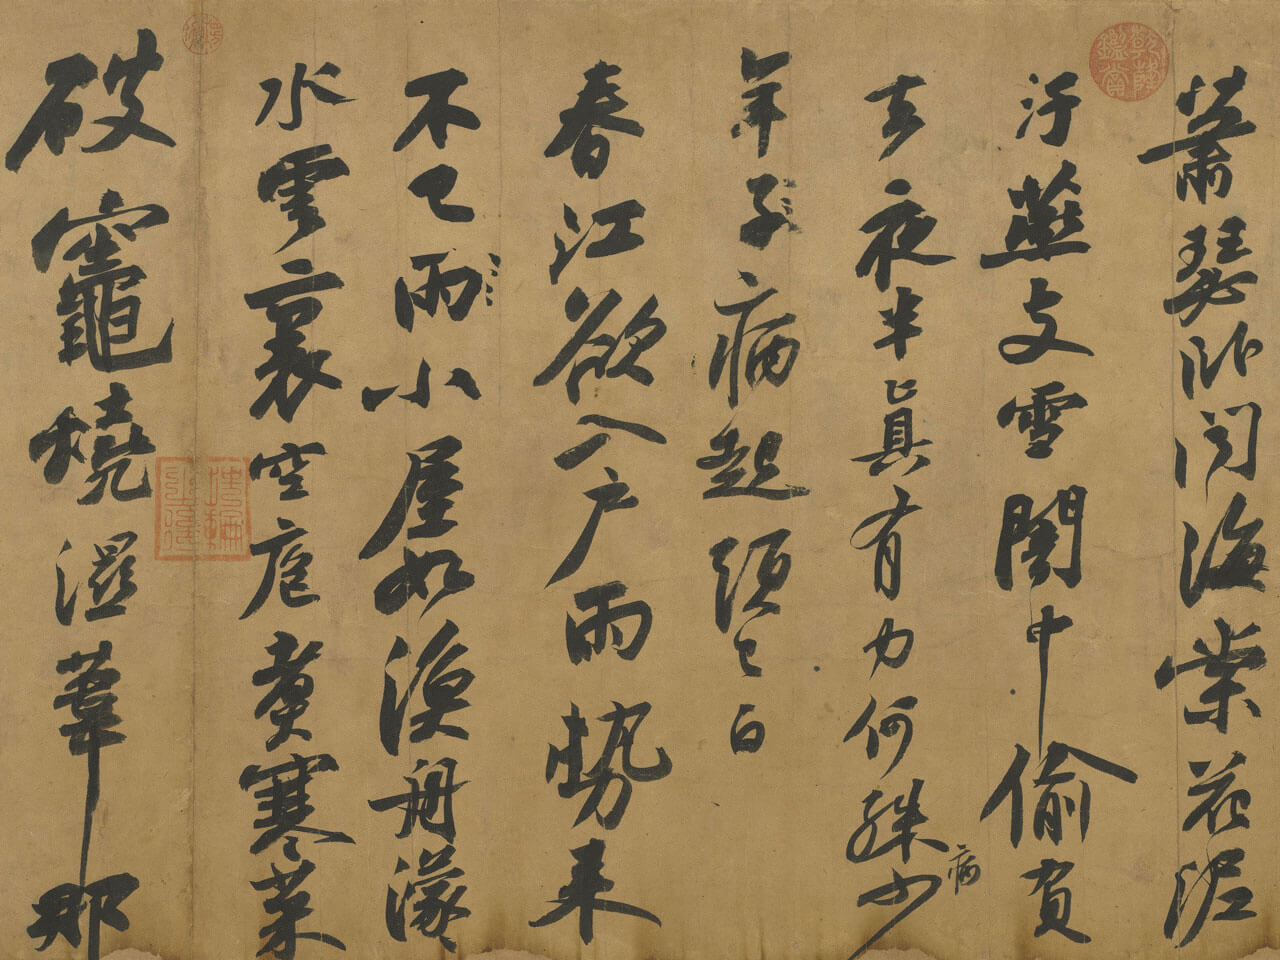 蕭瑟臥聞海棠花泥
汙燕支雪闇中偷負
去夜半真有力何殊病少
年子病起頭已白
春江欲入戶雨勢來
不已雨小屋如漁舟濛々
水雲裏空庖煮寒菜
破竈燒濕葦那
乾隆鑑賞